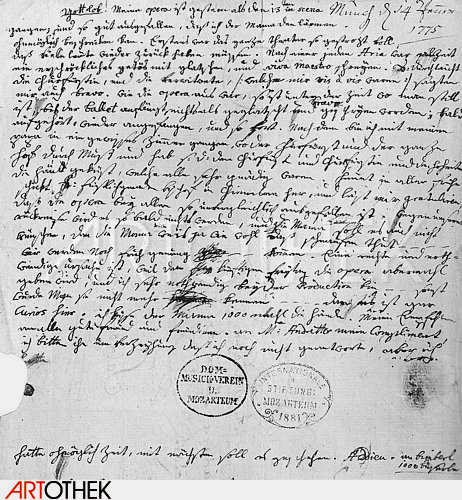 Gottlob! Meine opera ist gestern als den 13ten in scena Münch. den 14 Jenner
1775
gangen; und so gut ausgefallen, daß ich der Mama den Lärmen
ohnmöglich beschreiben kan. Erstens war das ganze theater so gestrozt voll
daß viele leute wieder zurück haben müssen. Nach einer jeden Aria war allzeit
ein erschröckliches getös mit glatschen, und viva maestro schreyen. S: Durchlaucht
die Churfürstin, und die verwitwete, (welche mir vis à vis waren) sagten
mir auch bravo. wie die opera aus war, so ist unter der zeit wo man still
ist, bis der ballet anfängt, nichts als geglatscht und bravo geschryen worden; bald
aufgehört, wieder angefangen, und so fort. Nach dem bin ich mit meinen
papa in ein gewisses zimmer gangen, wo der Churfürst und der ganze
hof durch muß und hab s: d: den Churfürst und Churfürstin und den hoheiten
die händ geküst, welche alle sehr gnädig waren. heunt in aller frühe
schickt S: fürstlichen gnaden bischof in Chiemsee her, und läst mir gratuliren
daß die opera bey allen so unvergleichlich ausgefallen ist. wegen unser
rückreise wird es so bald nicht werden, und die Mama soll es auch nicht
wünschen, den die Mama weis ja wie wohl das schnaufen thut
wir werden noch früh genug kommen. Eine rechte und noth-
wendige ursach ist, weil den künftigen freytag die opera abermahl
geben wird, und ich sehr nothwendig bey der Production bin sonst
würde Man sie nicht mehr kennen dan es ist gar
curios hier. ich küss der Mama 1000mahl die hände. Meine Empfehl
an alle gute freund und freündinen. an Mr: Andretter mein Compliment
ich bitte ihn um verzeihung daß ich noch nicht geantwortet, aber ich
hatte ohnmöglich zeit, mit nächsten soll es geschehen. Adieu. an bimberl
1000 busserln
DOM-
MUSICK-VEREIN
U.
MOZARTEUM
INTERNATIONALE
STIFTUNG:
MOZARTEUM
1881
ARTOTHEK